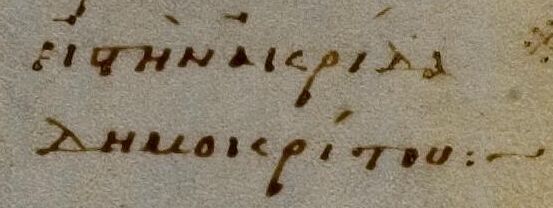 εἰς τὴν ἀκρίδα
δημοκρίτου :~